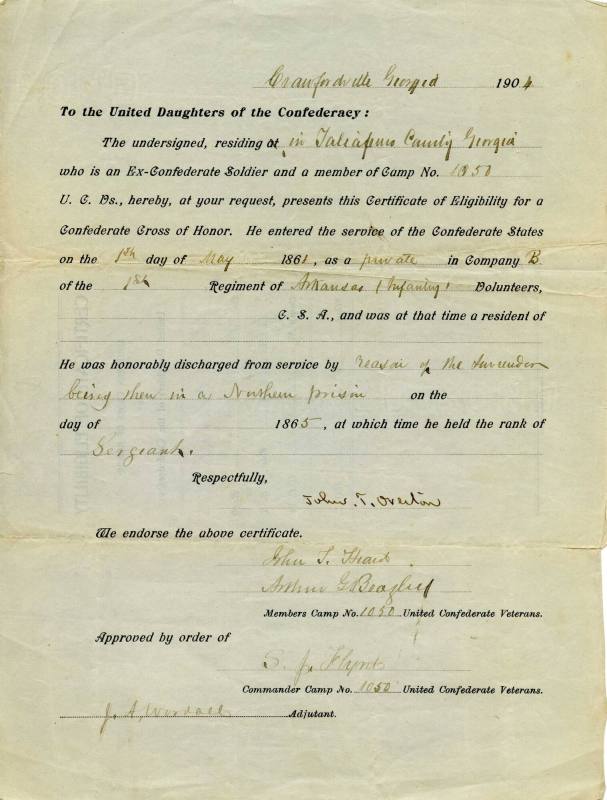 Crawfordville Georgia 1904
To the United Daughters of the Confederacy:
The undersigned, residing at in Taliaferro County Georgia
who is an Ex-Confederate Soldier and a member of Camp No. 1050
U. C. Ds., hereby, at your request, presents this Certificate of Eligibility for a
Confederate Cross of Honor. He entered the service of the Confederate States
on the 1st day of May 1861, as a private in Company B
of the 1st Regiment of Arkansas (Infantry) Volunteers,
C. S. A., and was at that time a resident of
He was honorably discharged from service by reason of the surrender
being then in a Northern prison on the
day of 1865, at which time he held the rank of
Sergeant.
Respectfully,
John. T. Overton
We endorse the above certificate.
John T. Heard
Arthur G Beazley
Members Camp No. 1050 United Confederate Veterans.
Approved by order of
S. J. Flynt
Commander Camp No. 1050 United Confederate Veterans.
J. A. Adjutant.